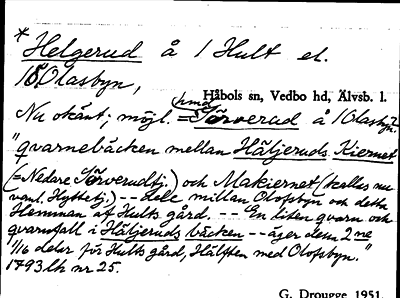 * Helgerud å 1 Hult el.
1 Olasbyn,
Håbols sn, Vedbo hd, Älvsb. l.
Nu okänt; möjl. = Sörverud å 1 Olasbyn.
"qvarnebäcken mellan Häljeruds Kiernet
(= Nedare Sörverudtj.) och Makiernet (kallas nu
vanl. Hyttetj.) -- Lele millan Olofsbyn och detta
Hemman af Hults gård. -- En liten qvarn och
qvarnfall i Häljeruds bäcken -- äger detta 2ne
1/16 delar för Hults gård, Hälften med Olofsbyn."
1793 lh nr 25.
G. Drougge 1951.